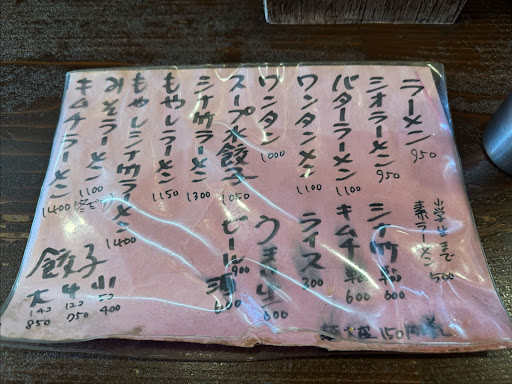 ラーメン 950
シオラーメン 950
バターラーメン 1100
ワンタンメン 1100
ワンタン 1000
スープ水餃子 1050
シナ竹ラーメン 1300
もやしラーメン 1150
もやしシナ竹ラーメン 1400
みそラーメン 1100
キムチラーメン 1400
小学生まで
素ラーメン 500
シナ竹 600
キムチ 600
ライス 300
うま生 600
ビール 900
酒 600
餃子
大 850
中 750
小 400
150円